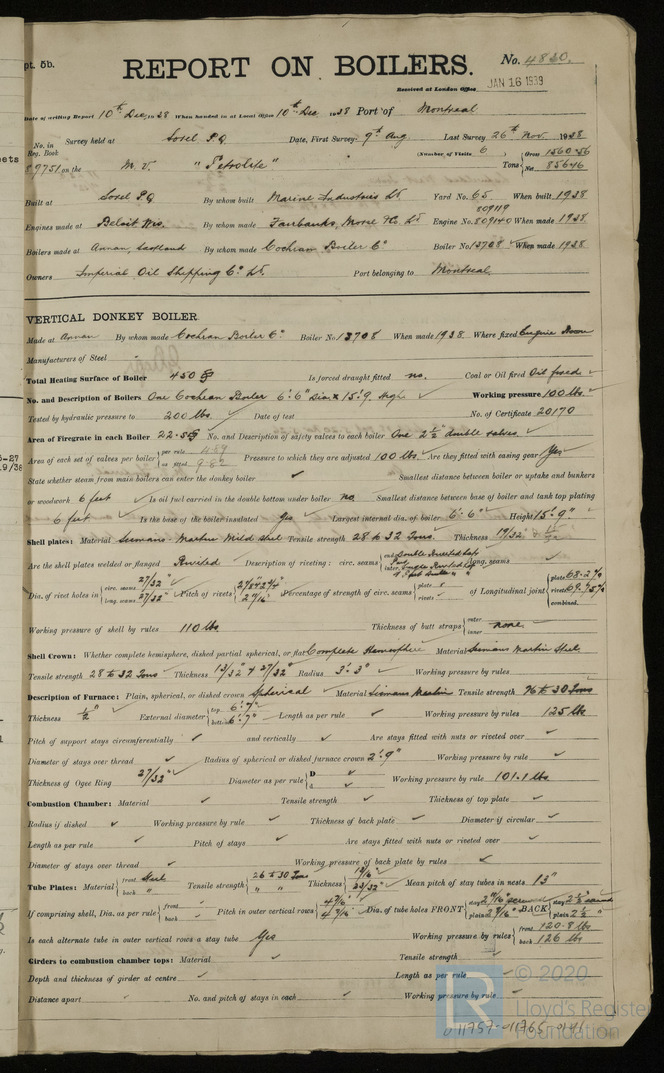 pt. 5b.
REPORT ON BOILERS.
No. 4820.
Received at London Office JAN 16 1939
Date of writing Report 10th Dec, 1938 When handed in at Local Office 10th Dec 1938 Port of Montreal
No. in Reg. Book Survey held at Sorel P.Q Date, First Survey 9th Aug Last Survey 26th Nov. 1938
(Number of Visits 6
89751 on the M.V. "Petrolite" Tons Gross 1560.56 Net 856.46
Built at Sorel P.Q By whom built Marine Industries Lt. Yard No. 65 When built 1938
Engines made at Beloit Wis. By whom made Fairbanks, Morse & Co. Lt Engine No. 809119 809140 When made 1938
Boilers made at Annan, Scotland By whom made Cochran Boiler Co Boiler No. 13708 When made 1938
Owners Imperial Oil Shipping Co. Lt. Port belonging to Montreal
VERTICAL DONKEY BOILER.
Made at Annan By whom made Cochran Boiler Co. Boiler No. 13708 When made 1938. Where fixed Engine Room
Manufacturers of Steel
Total Heating Surface of Boiler 450 Is forced draught fitted no. Coal or Oil fired Oil fired
No. and Description of Boilers One Cochran Boiler 6'-6" Dia x 15'-9" High Working pressure 100 lbs.
Tested by hydraulic pressure to 200 lbs. Date of test No. of Certificate 20170
Area of Firegrate in each Boiler 22.5 No. and Description of safety valves to each boiler One 2½" double valves.
Area of each set of valves per boiler per rule as fitted 9.82 Pressure to which they are adjusted 100 lbs. Are they fitted with easing gear Yes
State whether steam from main boilers can enter the donkey boiler ✓ Smallest distance between boiler or uptake and bunkers
or woodwork 6 feet Is oil fuel carried in the double bottom under boiler no Smallest distance between base of boiler and tank top plating
6 feet Is the base of the boiler insulated Yes Largest internal dia. of boiler 6'-6" Height 15'-9"
Shell plates: Material Siemens-Martin Mild Steel Tensile strength 28 to 32 Tons. Thickness 19/32"
Are the shell plates welded or flanged Riveted Description of riveting: circ. seams end Double Riveted Lap inter. Single Riveted Lap long. seams
Dia. of rivet holes in circ. seams 27/32" long. seams 27/32" Pitch of rivets Percentage of strength of circ. seams plate rivets of Longitudinal joint plate 68.2% rivets 69.75% combined.
Working pressure of shell by rules 110 lbs Thickness of butt straps outer inner none.
Shell Crown: Whether complete hemisphere, dished partial spherical, or flat Complete Hemisphere Material Siemens Martin Steel
Tensile strength 28 to 32 Tons Thickness Radius 3'-3" Working pressure by rules
Description of Furnace: Plain, spherical, or dished crown Spherical Material Siemens Martin Tensile strength 26 to 30 Tons
Thickness ½" External diameter top bottom 6'-7" Length as per rule ✓ Working pressure by rules 125 lbs
Pitch of support stays circumferentially ✓ and vertically ✓ Are stays fitted with nuts or riveted over ✓
Diameter of stays over thread ✓ Radius of spherical or dished furnace crown 2'-9" Working pressure by rule ✓
Thickness of Ogee Ring 27/32" Diameter as per rule D ✓ d ✓ Working pressure by rule 101.1 lbs
Combustion Chamber: Material ✓ Tensile strength ✓ Thickness of top plate ✓
Radius if dished ✓ Working pressure by rule ✓ Thickness of back plate ✓ Diameter if circular ✓
Length as per rule ✓ Pitch of stays ✓ Are stays fitted with nuts or riveted over ✓
Diameter of stays over thread ✓ Working pressure of back plate by rules ✓
Tube Plates: Material front Steel back " Tensile strength 26 to 30 Tons " " Thickness 23/32" Mean pitch of stay tubes in nests 13"
If comprising shell, Dia. as per rule front ✓ back ✓ Pitch in outer vertical rows Dia. of tube holes FRONT stay plain BACK stay plain 2½"
Is each alternate tube in outer vertical rows a stay tube Yes Working pressure by rules front 120.8 lbs back 126 lbs
Girders to combustion chamber tops: Material ✓ Tensile strength ✓
Depth and thickness of girder at centre ✓ Length as per rule ✓
Distance apart ✓ No. and pitch of stays in each ✓ Working pressure by rule ✓
LR © 2020 Lloyd's Register Foundation
011757-011765-0141